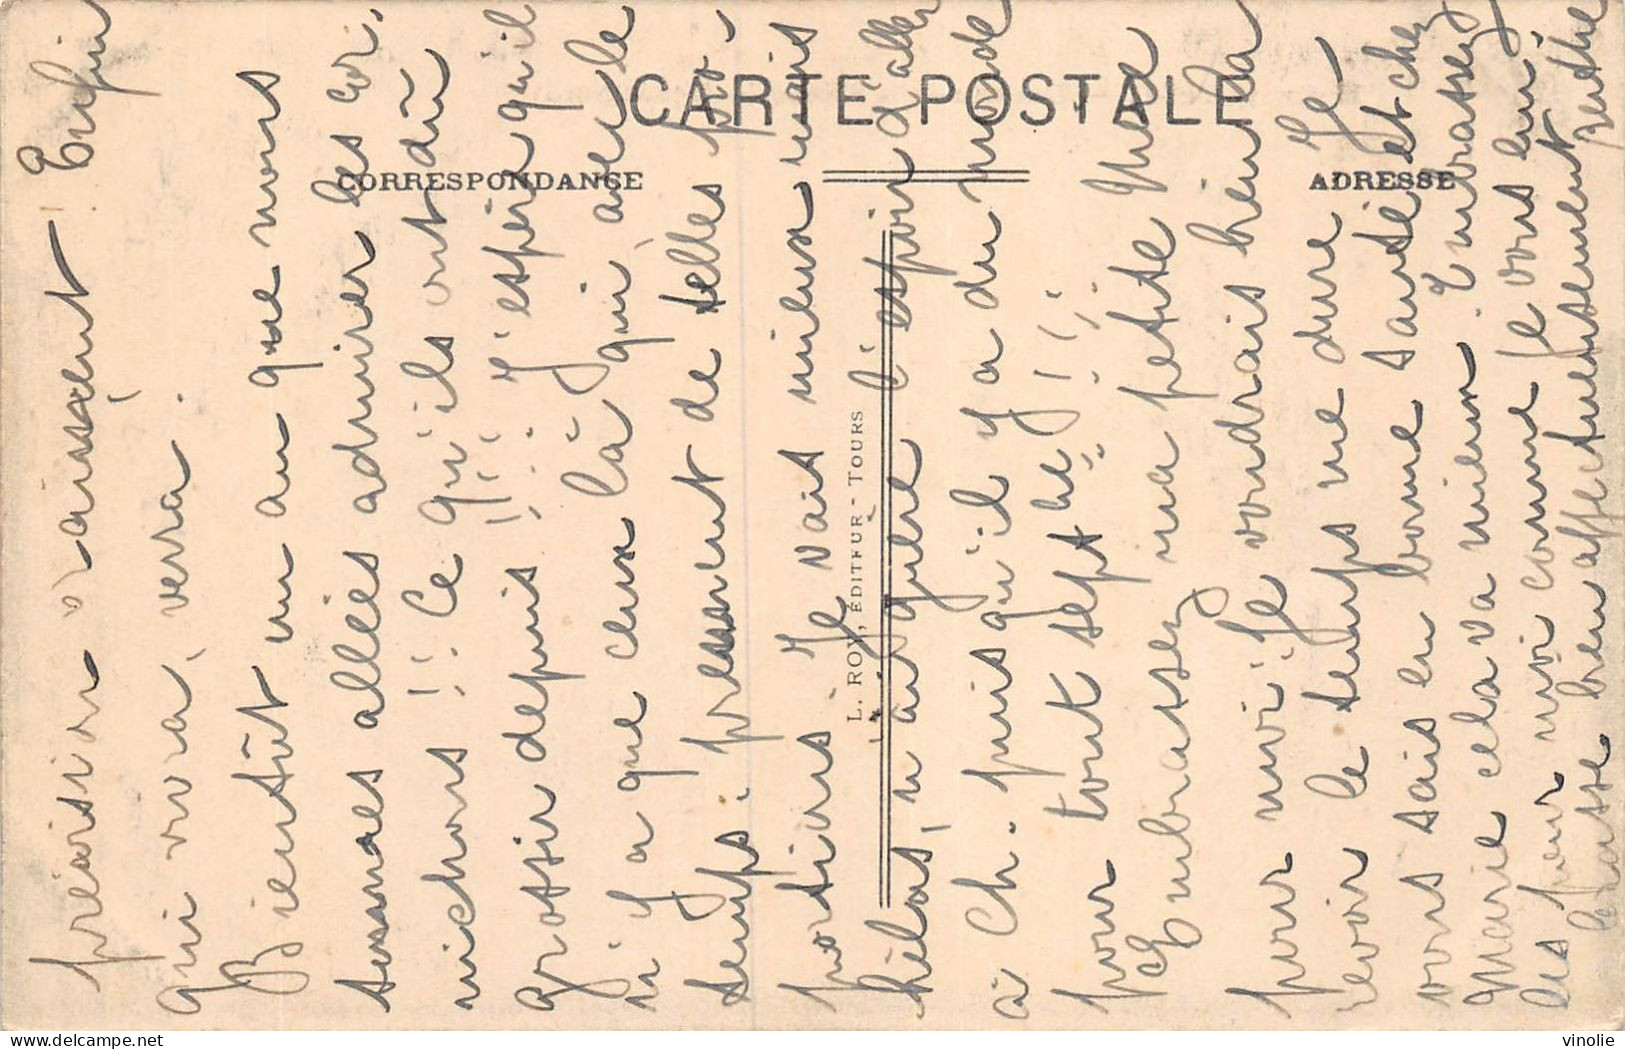 CARTE POSTALE
CORRESPONDANCE
ADRESSE
L. ROY, ÉDITEUR - TOURS
prévision vraiment ! Enfin
qui vivra, verra.
Bientôt un an que nous
sommes allées admirer les cor.
nichons !! Ce qu'ils ont dû
grossir depuis !!! J'espère qu'il
n'y a que ceux là qui, avec le
temps, prennent de telles pro-
portions. Je vais mieux mais
hélas, n'ai guère l'espoir d'aller
à Ch. puisqu'il y a du monde
pour tout sept bre !!!
Embrassez ma petite Mee
pour moi. Je voudrais bien la
revoir le temps me dure. Je
vous sais en bonne santé et chez
Marie cela va mieux. Embrassez
les pour moi comme je vous em-
brasse bien affectueusement
vinolie